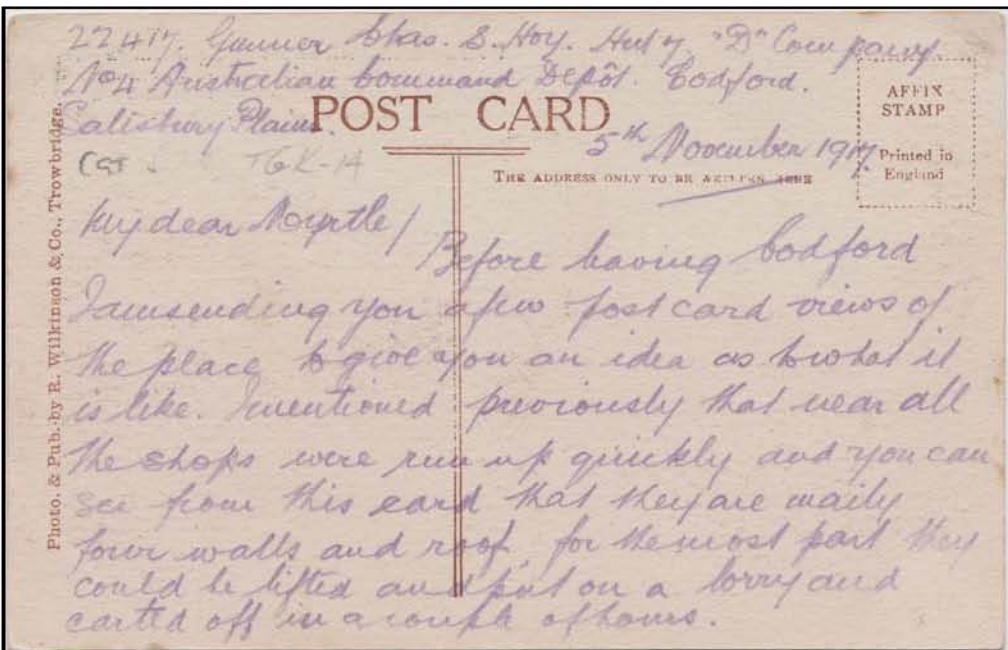 22417. Gunner Chas. S. Hoy. Hut 7. "D" Company.
No 4 Australian Command Depôt. Codford.
Salisbury Plains.
POST CARD
AFFIX
STAMP
Printed in
England
5th November 1917
THE ADDRESS ONLY TO BE WRITTEN HERE
TGK-14
Photo. & Pub. by R. Wilkinson & Co., Trowbridge.
My dear Myrtle/
Before leaving Codford
I am sending you a few post card views of
the place to give you an idea as to what it
is like. I mentioned previously that near all
the shops were run up quickly and you can
see from this card that they are maily
four walls and roof, for the most part they
could be lifted and put on a lorry and
carted off in a couple of hours.